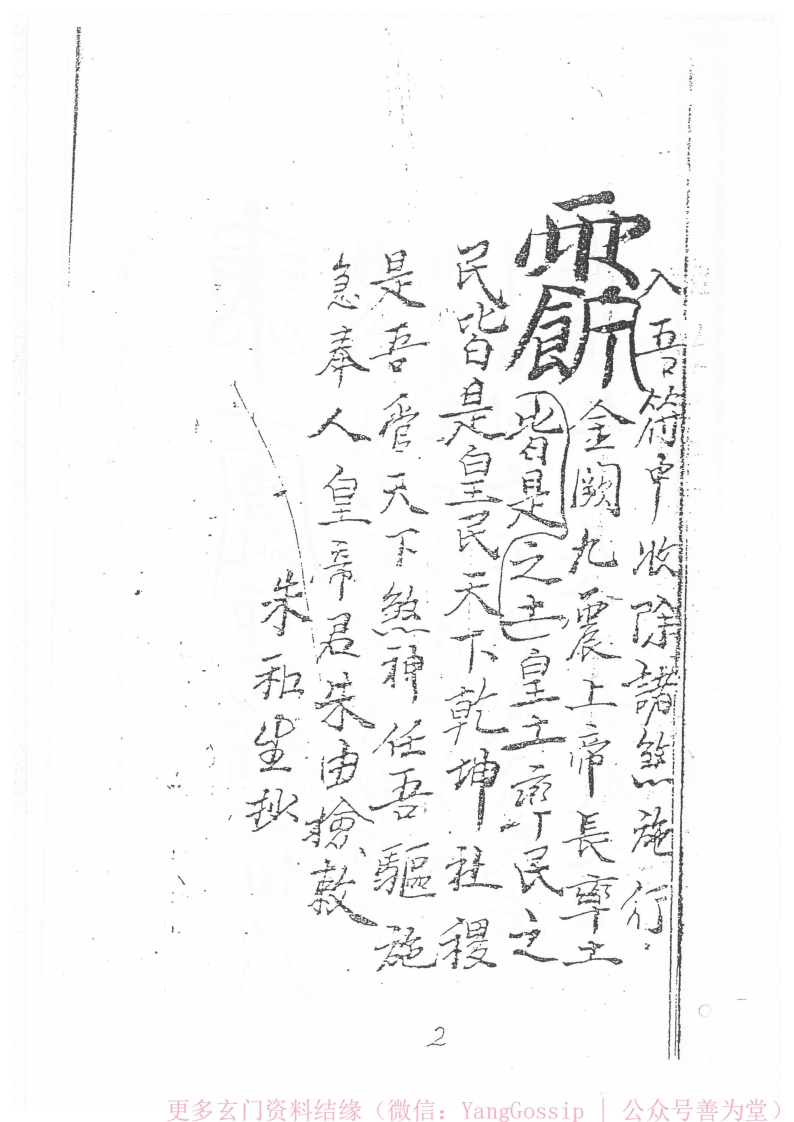 入吾符中收除諸煞施行
金闕九震上帝長率土
皆是之土皇土率民之
民皆是皇民天下乾坤社稷
是吾管天下煞神任吾驅施
急奉人皇帝君朱由檢敕
朱和生抄
2
更多玄门资料结缘（微信：YangGossip | 公众号善为堂）